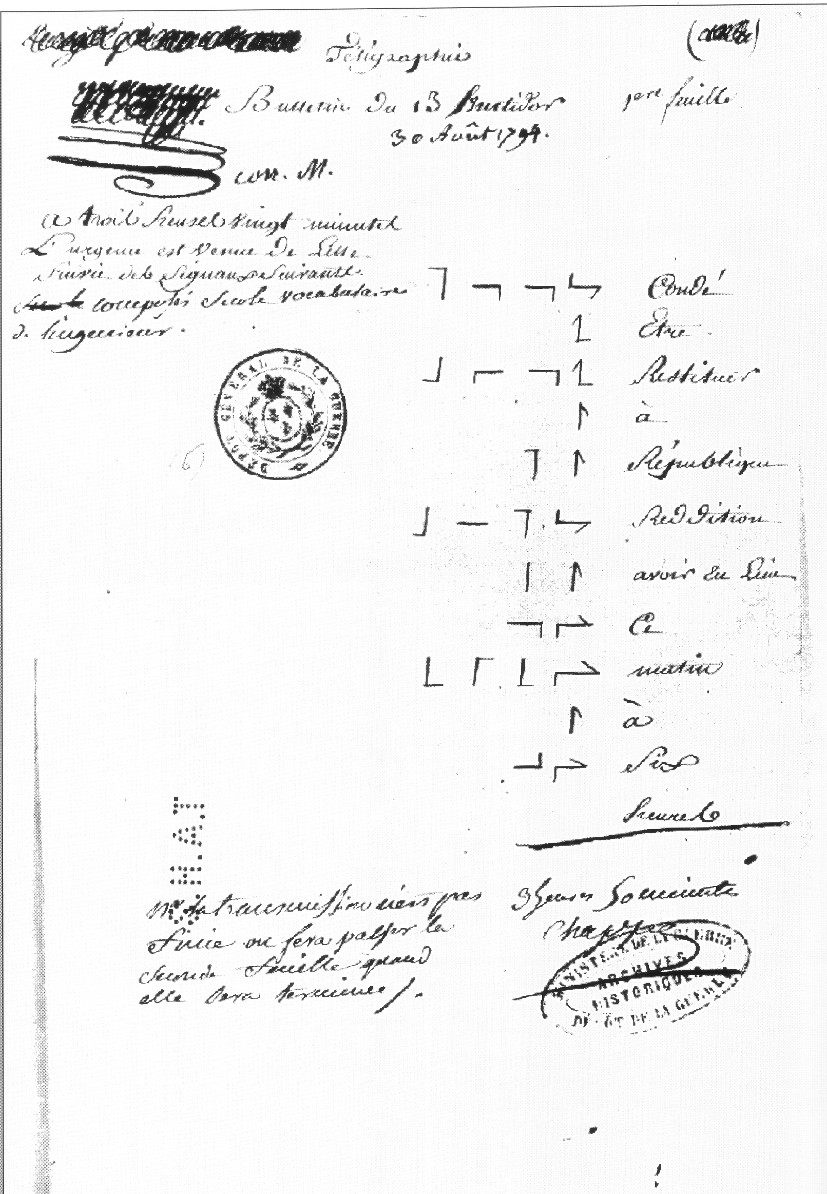 Télégraphie
Bulletin du 13 fructidor 1ere feuille
30 Août 1794.
corr. M.
a trois heures vingt minutes
L'urgence est venue de Lille
Suivie des Signaux Suivants
composés Sur le vocabulaire
de l'ingenieur.
Condé
Etre
Restituer
à
République
Reddition
avoir eu lieu
Ce
matin
à
Six
heures
DEPOT GENERAL DE LA GUERRE
S.H.A.T
la transmission n'est pas
finie on fera passer la
seconde feuille quand
elle sera terminée.
3 heures 50 minutes
Chappe
MINISTERE DE LA GUERRE
ARCHIVES
HISTORIQUES
DE LA GUERRE